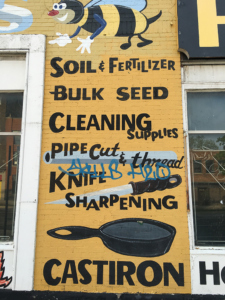 SOIL & FERTILIZER
BULK SEED
CLEANING
SUPPLIES
PIPE Cut & thread
KNIFE
SHARPENING
CASTIRON